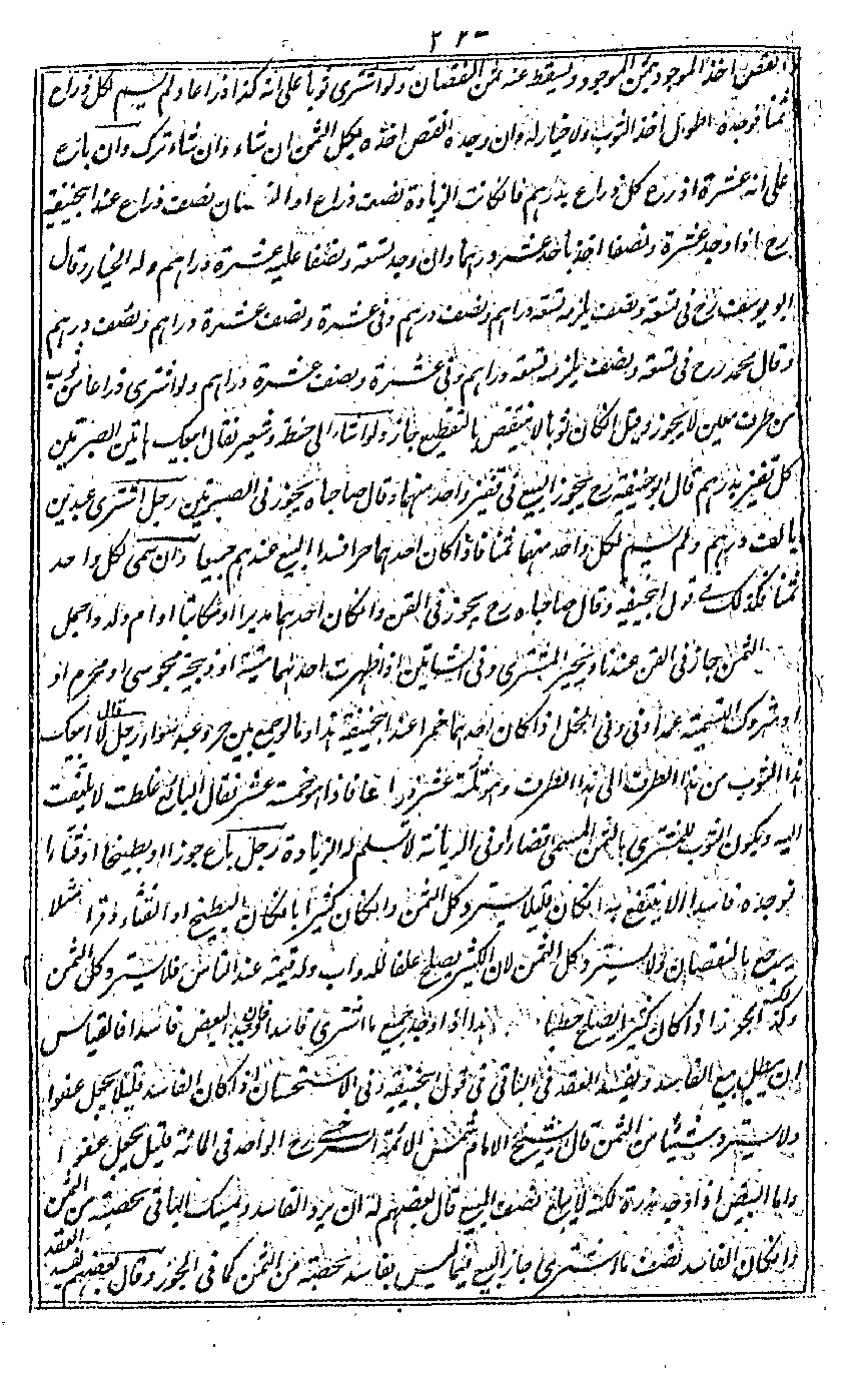 ٢٢٣
انقص اخذ الموجود بثمن الموجود ويسقط عنه ثمن النقصان ولو اشترى ثوبا على انه كذا ذراعا ولم يسم لكل ذراع
ثمنا فوجده اطول اخذ الثوب ولا خيار له وان وجده انقص اخذه بكل الثمن ان شاء وان شاء ترك وان باع
على انه عشرة اذرع كل ذراع بدرهم فان كانت الزيادة نصف ذراع او النقصان نصف ذراع عند ابيحنيفة
رح اذا وجد عشرة ونصفا اخذ باحد عشر درهما وان وجد تسعة ونصفا عليه عشرة دراهم وله الخيار وقال
ابو يوسف رح فى تسعة ونصف يلزمه تسعة دراهم ونصف درهم وفى عشرة ونصف عشرة دراهم ونصف درهم
وقال محمد رح فى تسعة ونصف يلزمه تسعة دراهم وفى عشرة ونصف عشرة دراهم ولو اشترى ذراعا من ثوب
من طرف معين لا يجوز وقيل ان كان ثوبا لا ينتقص بالتقطيع جاز ولو اشار الى حنطة وشعير فقال ابيعك هاتين الصبرتين
كل قفيز بدرهم قال ابو حنيفة رح يجوز البيع فى قفيز واحد منهما وقال صاحباه يجوز فى الصبرتين رجل اشترى عبدين
بالف درهم ولم يسم لكل واحد منهما ثمنا فاذا كان احدهما حرا فسد البيع عندهم جميعا وان سمى لكل واحد
ثمنا فكذلك فى قول ابيحنيفة وقال صاحباه رح يجوز فى القن وان كان احدهما مدبرا او مكاتبا او ام ولد واجمل
الثمن جاز فى القن عندنا ويخير المشترى وفى الشاتين اذا ظهرت احدىهما ميتة او ذبيحة مجوسى او محرم او
او متروك التسمية عمدا وفى الخل اذا كان احدهما خمرا عند ابيحنيفة هذا وما لو جمع بين حر وعبد سواء رجل قال لا ابيعك
هذا الثوب من هذا الطرف الى هذا الطرف وهو ثلثة عشر ذراعا فاذا هو خمسة عشر فقال البائع غلطت لا يلتفت
اليه ويكون الثوب للمشترى بالثمن المسمى قضاء وفى الديانة لا تسلم له الزيادة رجل باع جوزا او بطيخا او قثاء
فوجده فاسدا لا ينتفع به ان كان قليلا يسترد كل الثمن وان كان كثيرا بان كان البطيخ او القثاء وقرا مثلا
يرجع بالنقصان ولا يسترد كل الثمن لان الكثير يصلح علفا للدواب وله قيمة عند الناس فلا يسترد كل الثمن
وكذلك الجوز اذا كان كثيرا يصلح حطبا هذا اذا وجد جميع ما اشترى فاسدا فان وجد البعض فاسدا فالقياس
ان يبطل بيع الفاسد ويفسد العقد فى الباقى فى قول ابيحنيفة وفى الاستحسان اذا كان الفاسد قليلا يجعل عفوا
ولا يسترد شيئا من الثمن قال الشيخ الامام شمس الائمة السرخسى رح الواحد فى المائة قليل يجعل عفوا
واما البيض اذا وجد مذرة لكنه لا يبلغ نصف المبيع قال بعضهم له ان يرد الفاسد ويمسك الباقى بحصته من الثمن
وان كان الفاسد نصف ما اشترى جاز البيع فيما ليس بفاسد بحصته من الثمن كما فى الجوز وقال بعضهم يفسد العقد